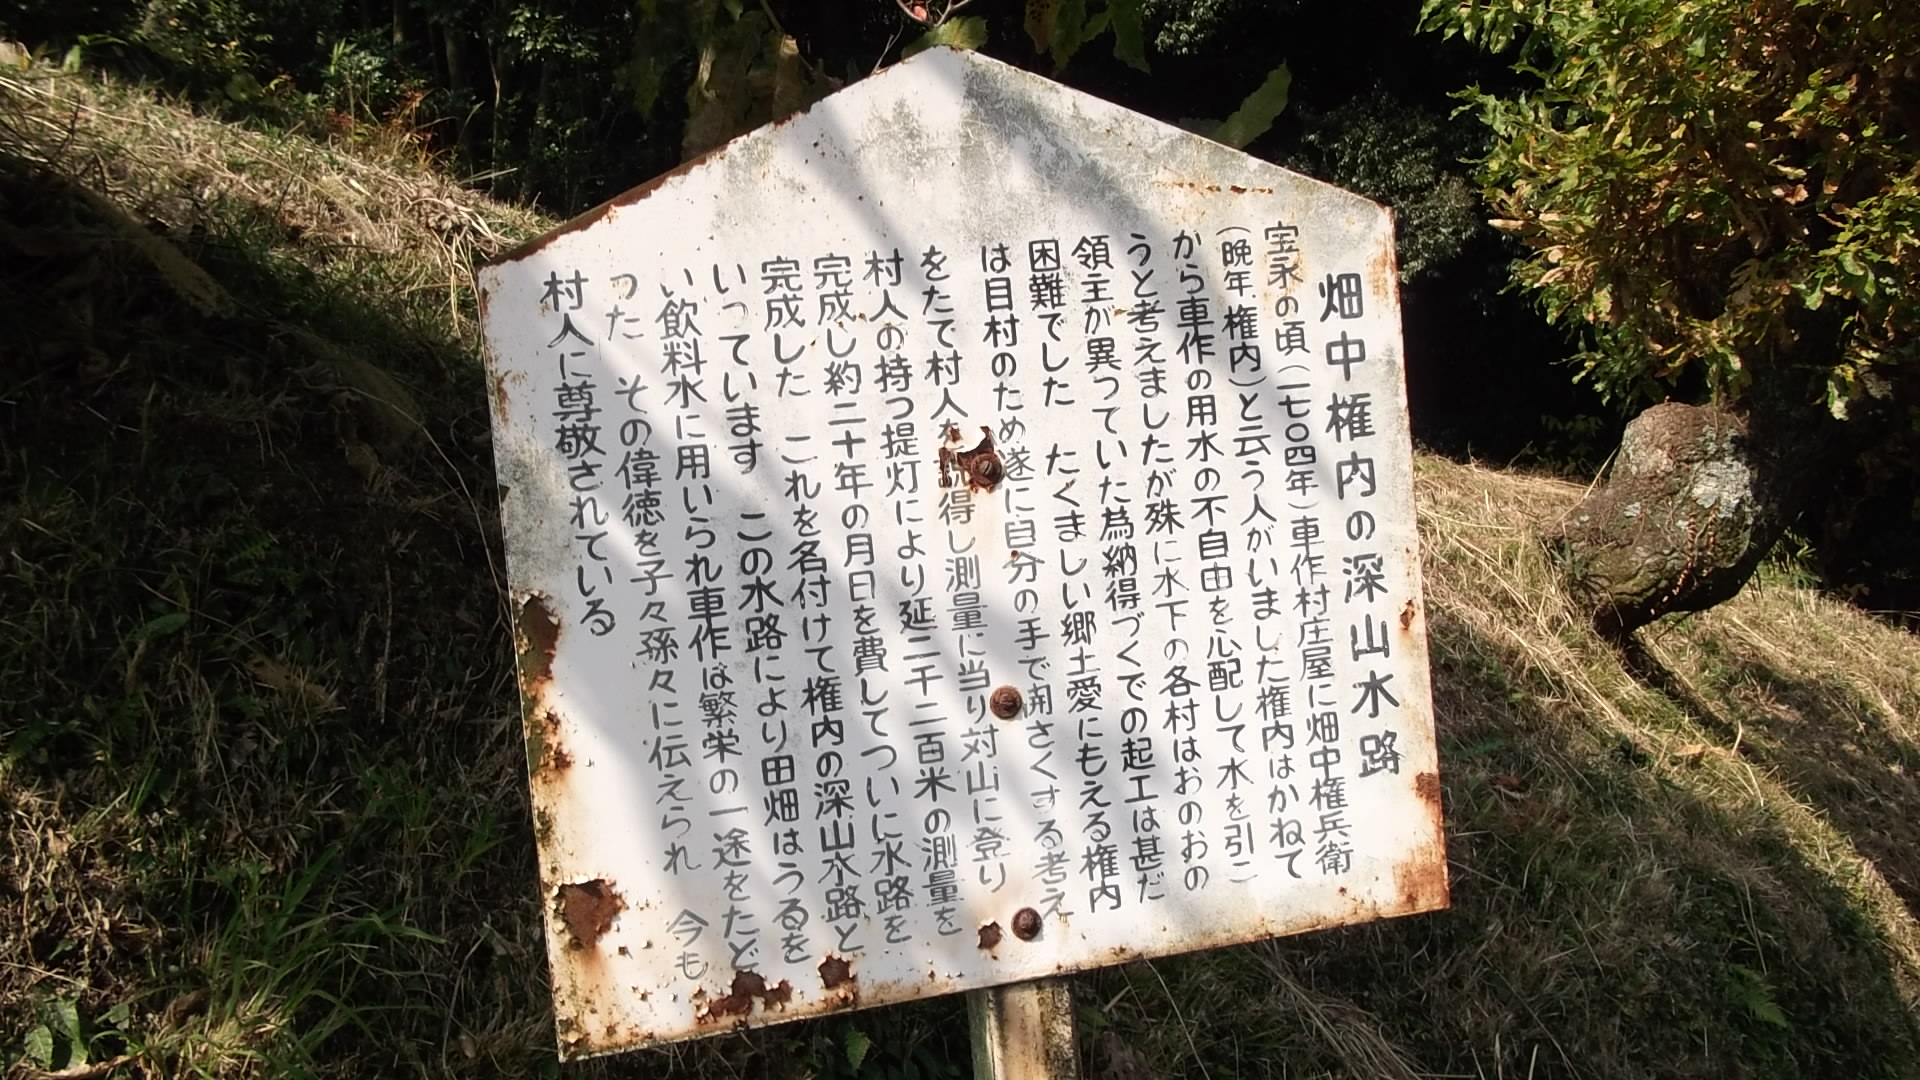 畑中権内の深山水路
宝永の頃(一七〇四年)車作村庄屋に畑中権兵衛
(晩年権内)と云う人がいました権内はかねて
から車作の用水の不自由を心配して水を引こ
うと考えましたが殊に水下の各村はおのおの
領主が異つていた為納得づくでの起工は甚だ
困難でした たくましい郷土愛にもえる権内
は目村のため遂に自分の手で開さくする考え
をたて村人を説得し測量に当り対山に登り
村人の持つ提灯により延二千二百米の測量を
完成し約二十年の月日を費してついに水路を
完成した これを名付けて権内の深山水路と
いっています この水路により田畑はうるを
い飲料水に用いられ車作は繁栄の一途をたど
つた その偉徳を子々孫々に伝えられ 今も
村人に尊敬されている